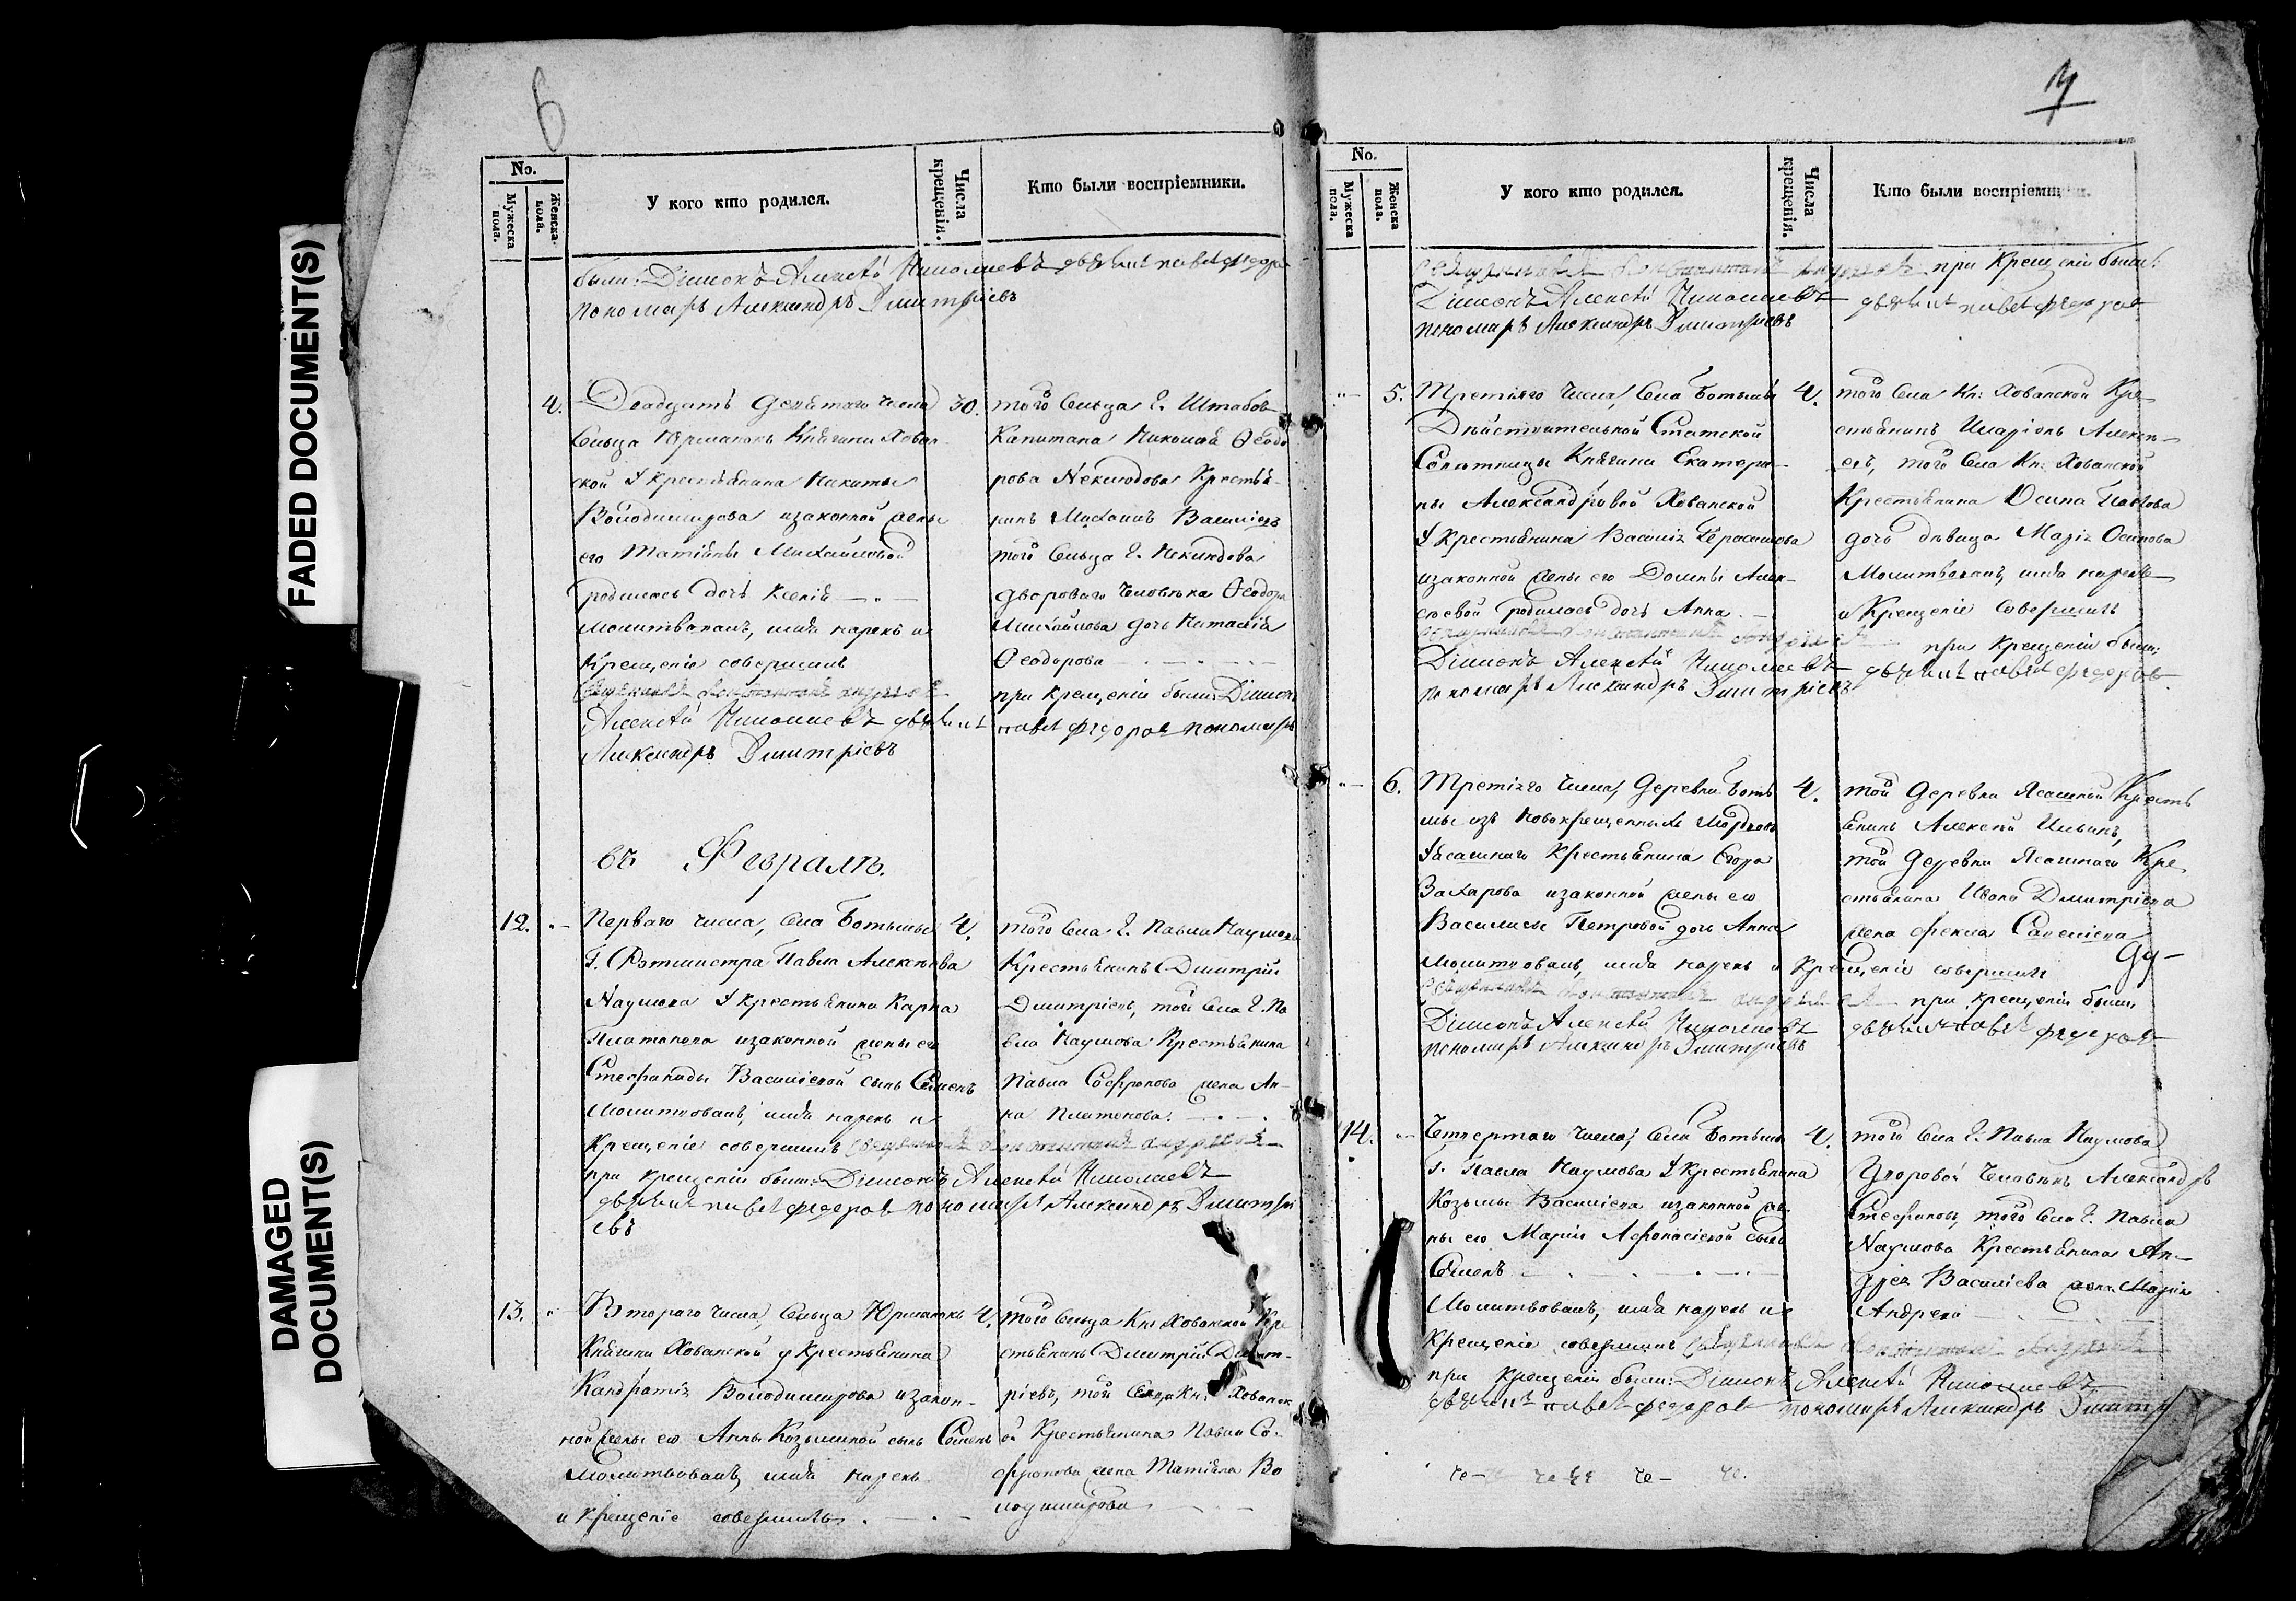 FADED DOCUMENT(S)
DAMAGED
DOCUMENT(S)
6
No.
Мужеска пола.
Женска пола.
У кого кто родился.
Числа крещенія.
Кто были воспріемники.
были: Діаконъ Алексѣй Николаевъ дьячекъ павелъ федоров
пономарь Александръ Дмитріевъ
4. Двадцать девятого числа 30.
Сельца Юрманокъ Княгини Хован-
ской у крестьянина Никиты
Володимирова и законной жены
его Татіяны Михайловой
родилась дочь Ксенія
Молитвовалъ, имя нарекъ и
Крещеніе совершилъ
Священникъ Константинъ андреевъ
Алексѣй Николаевъ дьячекъ
Александръ Дмитріевъ
того Сельца Г. Штабсъ
Капитана Николая Ѳеодо
рова Неклюдова Крестья-
нинъ Михаилъ Васильевъ
того Сельца Г. Неклюдова
двороваго человѣка Ѳеодора
Михайлова дочь Наталія
Ѳеодорова
при крещеніи были: Діаконъ
павелъ федоров пономарь
въ Февралѣ.
12. Перваго числа, Села Ботьмы 4.
Г. Ротмистра Павла Алексѣева
Наумова У крестьянина Карпа
Платонова и законной жены его
Стефаниды Васильевой сынъ Семенъ
Молитвовалъ, имя нарекъ и
Крещеніе совершилъ Священникъ Константинъ андреевъ
при крещеніи были: Діаконъ Алексѣй Николаевъ
дьячекъ павелъ федоров пономарь Александръ Дмитрі
евъ
того Села Г. Павла Наумова
Крестьянинъ Дмитрій
Дмитріевъ, того Села Г. Па
вла Наумова Крестьянина
Павла Софронова жена Ан-
на Платонова.
13. Втораго числа, Сельца Юрманокъ 4.
Княгини Хованской у Крестьянина
Кандратія Володимирова и закон-
ной жены его Анны Козьминой сынъ Семенъ
Молитвовалъ, имя нарекъ
и Крещеніе совершилъ
того Сельца Кн: Хованской Кре
стьянинъ Дмитрій Дмит-
ріевъ, той Кн: Хованск
ой Крестьянина Павла Со-
фронова жена Татіяна Во
лодимирова
7
No.
Мужеска пола.
Женска пола.
У кого кто родился.
Числа крещенія.
Кто были воспріемники.
Священникъ Константинъ андреевъ при Крещеніи были:
Діаконъ Алексѣй Николаевъ дьячекъ павелъ федоров
пономарь Александръ Дмитріевъ
5. Третіяго числа, Села Ботьмы 4.
Дѣйствительной Статской
Совѣтницы Княгини Екатери-
ны Александровой Хованской
У крестьянина Василія Герасимова
и законной жены его Домны Алек-
сѣевой родилась дочь Анна
Священникъ Константинъ андреевъ при крещеніи были:
Діаконъ Алексѣй Николаевъ дьячекъ павелъ федоров
пономарь Александръ Дмитріевъ
того Села Кн: Хованской Кре-
стьянинъ Иларіонъ Алексѣ-
евъ, того Села Кн: Хованской
Крестьянина Осипа Павлова
дочь дѣвица Марія Осипова
Молитвовалъ, имя нарекъ
и Крещеніе совершилъ
6. Третіяго числа, Деревни Боть 4.
мы изъ Новокрещенныхъ Мордовъ
Ясашнаго Крестьянина Егора
Захарова и законной жены его
Василисы Петровой дочь Анна
Молитвовалъ, имя нарекъ и Крещеніе совершилъ
Священникъ Константинъ андреевъ при крещеніи были,
Діаконъ Алексѣй Николаевъ дьячекъ павелъ федоров
пономарь Александръ Дмитріевъ
той Деревни Ясашной Кресть
янинъ Алексѣй Ильинъ,
той Деревни Ясашнаго Кре
стьянина Ивана Дмитріева
жена Фекла Савельева
14. Четвертаго числа, Села Ботьмы 4.
Г. Павла Наумова У Крестьянина
Козьмы Васильева и законной же-
ны его Маріи Афонасіевой сынъ
Семенъ
Молитвовалъ, имя нарекъ и
Крещеніе совершилъ Священникъ Константинъ Андреевъ
при Крещеніи были: Діаконъ Алексѣй Николаевъ
дьячекъ павелъ федоров пономарь Александръ Дмитр
того Села Г. Павла Наумова
Дворовой Человѣкъ Александръ
Стефановъ, того Села Г. Павла
Наумова Крестьянина Ан-
дрея Васильева жена Марія
Андреева